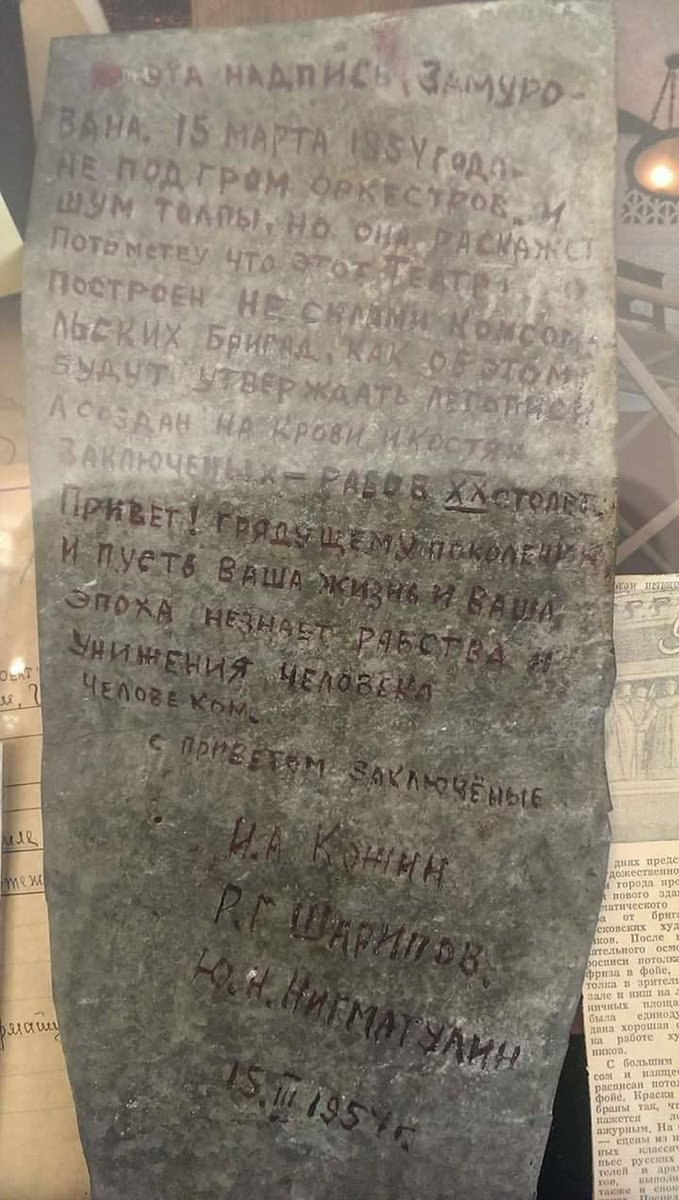 ЭТА НАДПИСЬ ЗАМУРО-
ВАНА. 15 МАРТА 1954 ГОДА-
НЕ ПОД ГРОМ ОРКЕСТРОВ И
ШУМ ТОЛПЫ, НО ОНА РАСКАЖЕТ
ПОТОМСТВУ ЧТО ЭТОТ ТЕАТР
ПОСТРОЕН НЕ СИЛАМИ КОМСОМ-
ЛЬСКИХ БРИГАД, КАК ОБ ЭТОМ
БУДУТ УТВЕРЖДАТЬ ЛЕТОПИСИ
А СОЗДАН НА КРОВИ И КОСТЯХ
ЗАКЛЮЧЕНЫХ — РАБОВ XX СТОЛЕТ.
ПРИВЕТ! ГРЯДУЩЕМУ ПОКОЛЕНИЮ
И ПУСТЬ ВАША ЖИЗНЬ И ВАША
ЭПОХА НЕЗНАЕТ РАБСТВА И
УНИЖЕНИЯ ЧЕЛОВЕКА
ЧЕЛОВЕКОМ.
С ПРИВЕТОМ ЗАКЛЮЧЁНЫЕ
И.А КОЖИН
Р.Г ШАРИПОВ.
Ю.Н. НИГМАТУЛИН
15.III 1954г.
днях предс
дожественно
и города про
нового зда
матического
а от бриг
сковских худ
ков. После
ательного осмо
росписи потолка
фриза в фойе,
толка в зрител
зале и ниш на л
ничных площа
была единоду
дана хорошая
ка работе ху
ников.
С большим
сом и изящес
расписан пото
фойе. Краски
браны так, чт
кажется ле
ажурным. На
— сцены из н
ных классич
пьес русских
телей и дра
тов, выполн
также и спок